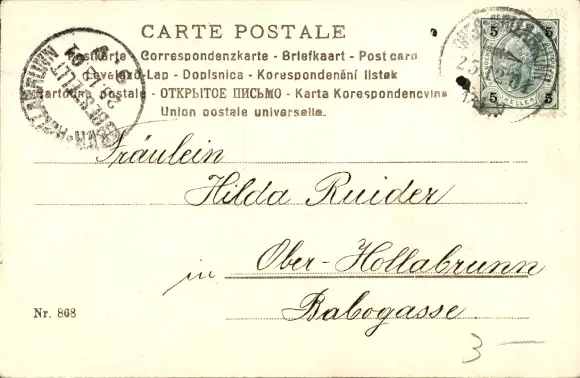 CARTE POSTALE
Postkarte Correspondenzkarte - Briefkaart - Post card
Levelező-Lap - Dopisnica - Korespondenční lístek
Cartolina postale - ОТКРЫТОЕ ПИСЬМО - Karta Korespondencyina
Union postale universelle.
5 5
5 HELLER 5
BESTELLT
Fräulein
Hilda Ruider
in Ober-Hollabrunn
Babogasse
Nr. 868
3 —